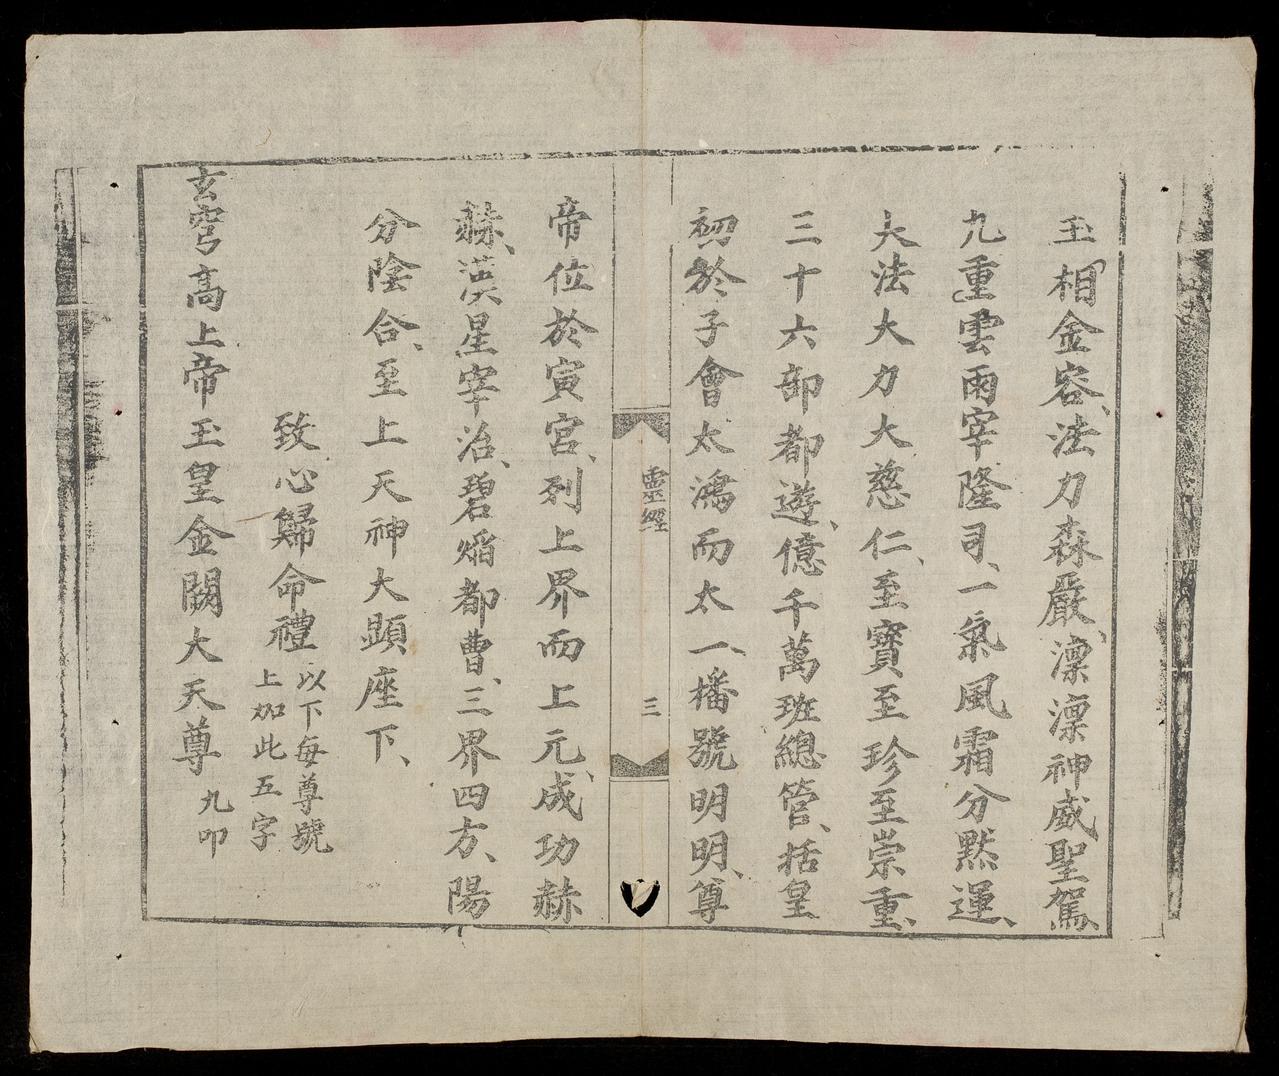 玉相金容、法力森嚴、凛凛神威、聖駕
九重雲雨宰隆司、一氣風霜分黙運、
大法大力大慈仁、至寳至珍至崇重、
三十六部都遊、億千萬班總管、括皇
初於子會太鴻而太一、播號明明、尊
靈經
三
帝位於寅宮、列上界而上元、成功赫
赫、漢星宰治、碧熖都曹、三界四方、陽
分陰合、至上天神大顕座下、
致心歸命禮 以下每尊號
上加此五字
玄穹高上帝玉皇金闕大天尊 九叩